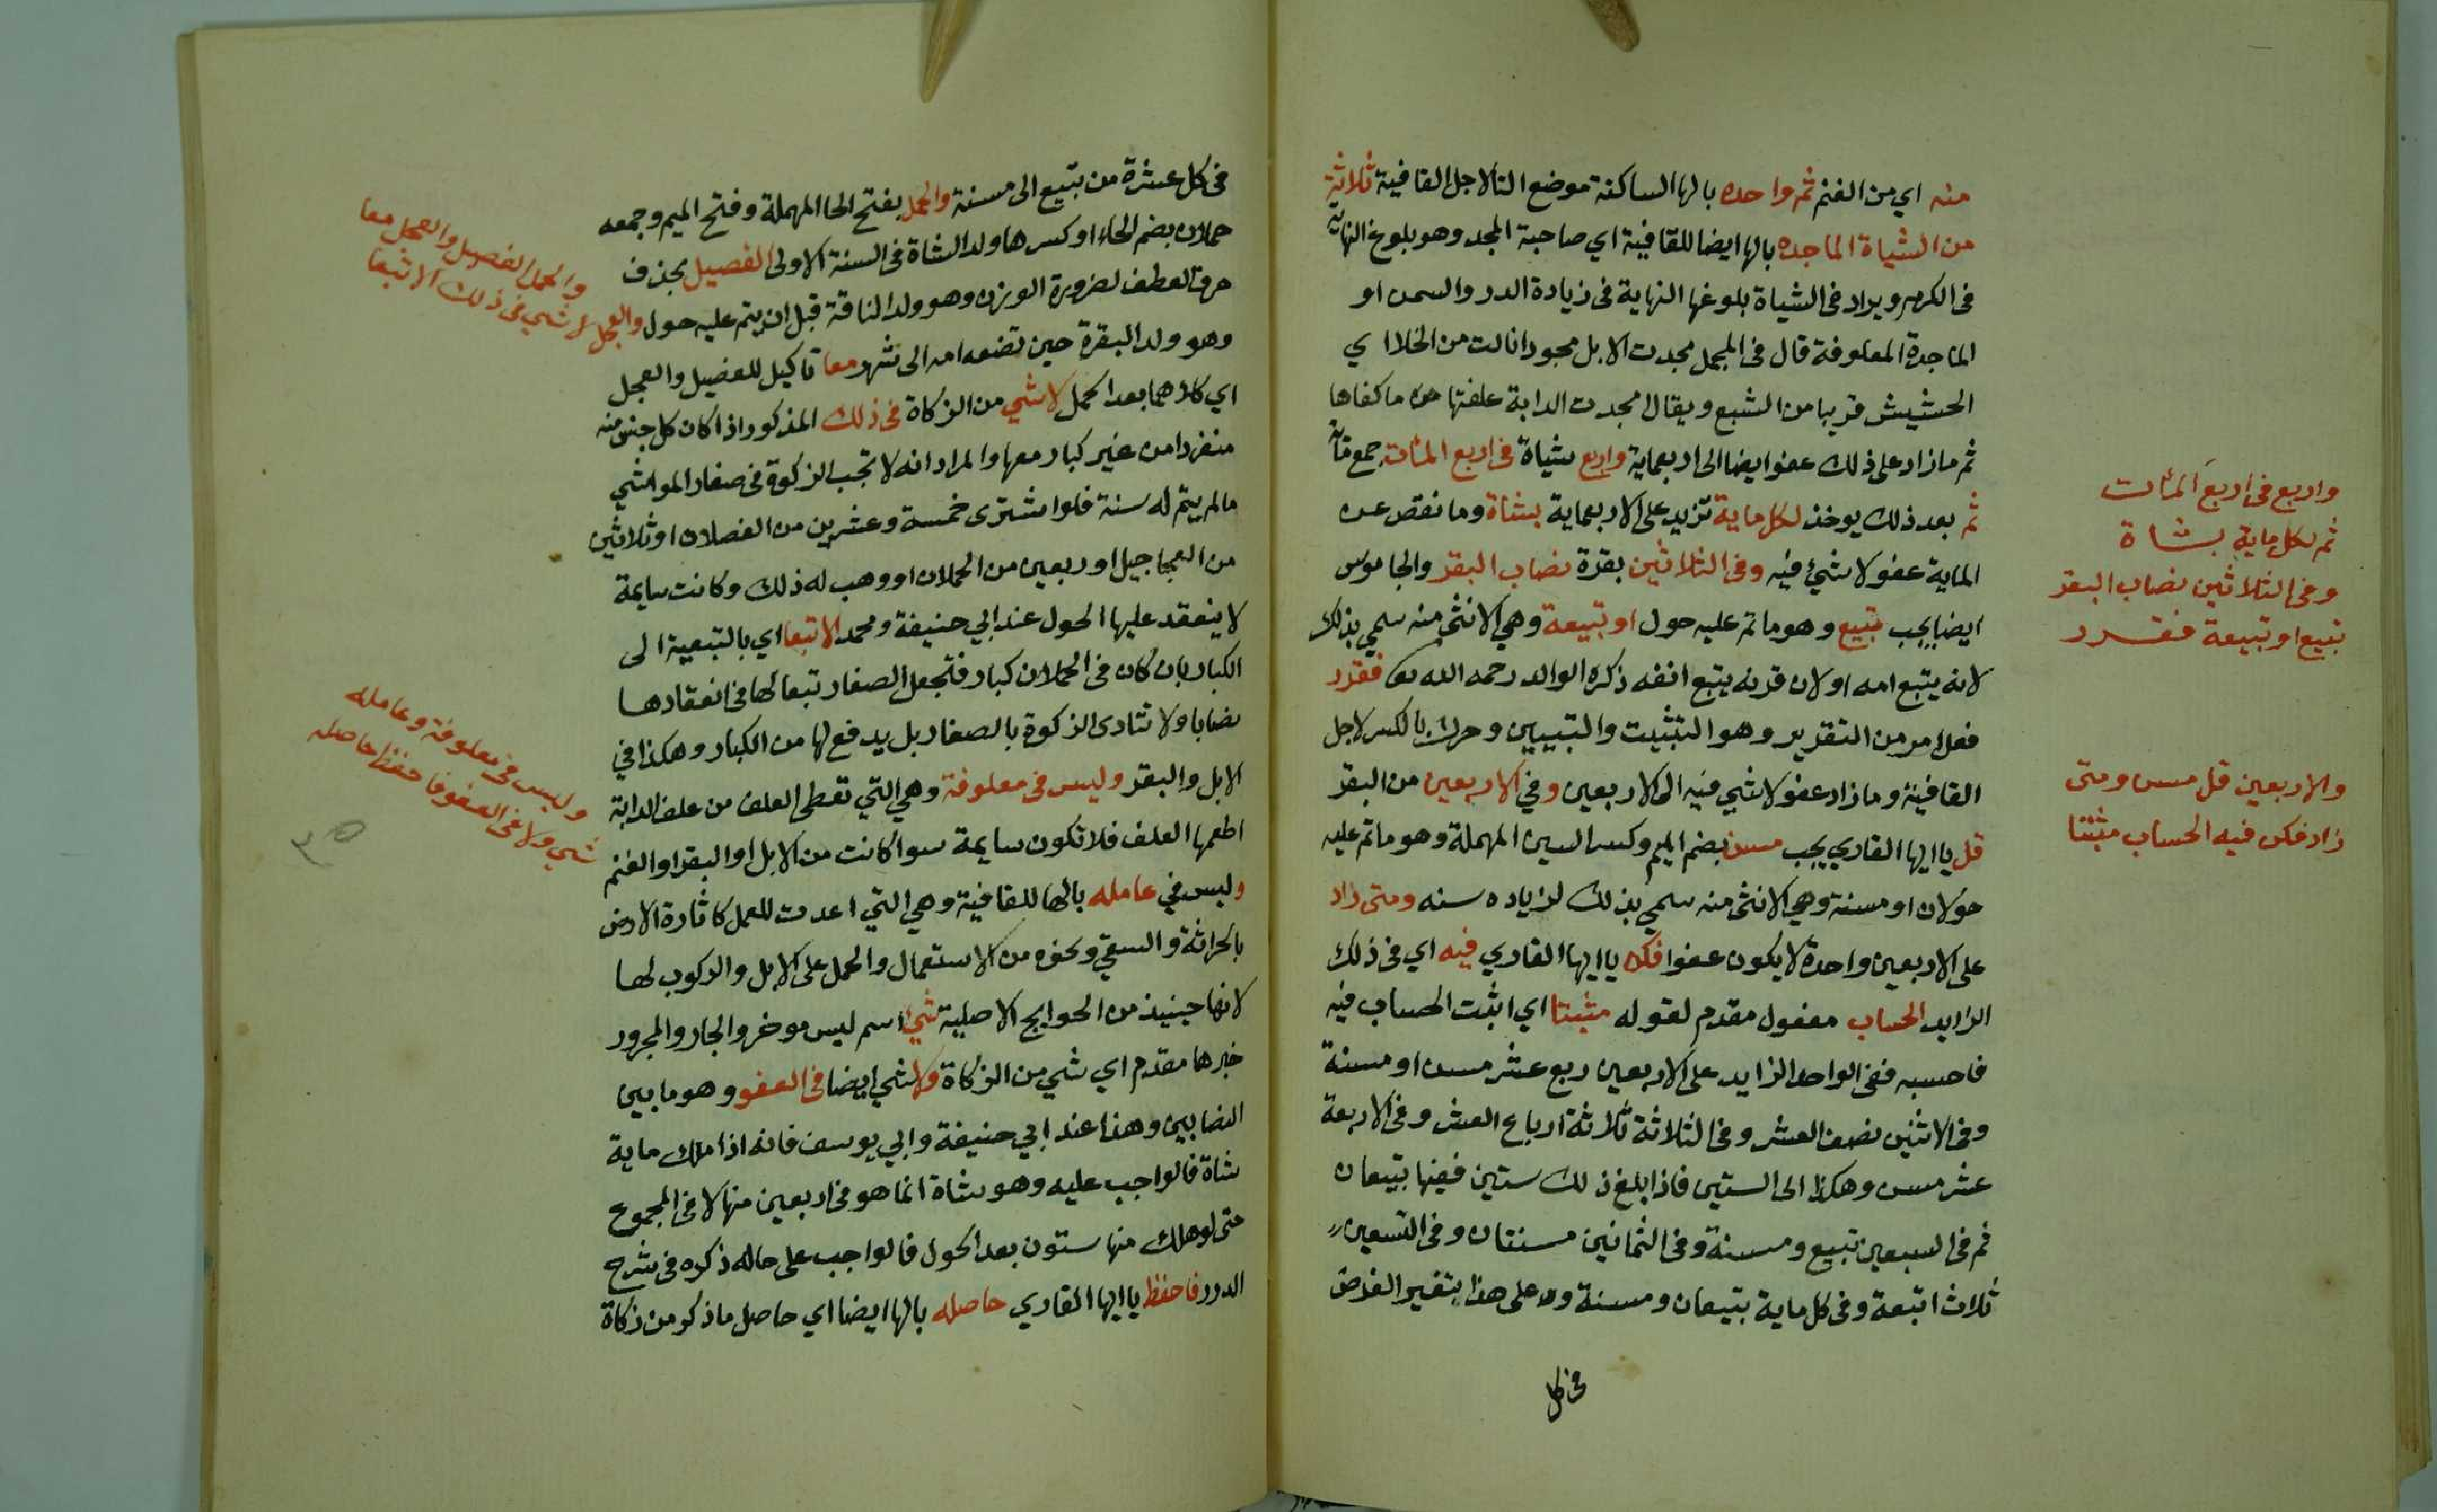 منه اي من الغنم ثم واحده بالها الساكنة موضع التا لاجل القافية ثلاثة
من الشياة الماجده بالها ايضا للقافية اي صاحبة المجد وهو بلوغ النهاية
في الكرم ويراد في الشياة بلوغها النهاية في زيادة الدر والسمن او
الماجدة المعلوفة قال في المجمل مجدت الابل مجودا نالت من الخلا اي
الحشيش قريبا من الشبع ويقال مجدت الدابة علفتها ما كفاها
ثم ما زاد على ذلك عفو ايضا الى اربعماية واربع شياة في اربع المئات جمع مائة
ثم بعد ذلك يوخذ لكل ماية تزيد على الاربعماية بشاة وما نقص عن
الماية عفو لا شيء فيه وفي الثلاثين بقرة نصاب البقر والجاموس
ايضا يجب تبيع وهو ما تم عليه حول او تبيعة وهي الانثى منه سمي بذلك
لانه يتبع امه او لان قرنه يتبع اذنه ذكره الوالد رحمه الله تع فقرر
فعل امر من التقرير وهو التثبيت والتبيين وحرك بالكسر لاجل
القافية وما زاد عفو لا شي فيه الى الاربعين وفي الاربعين من البقر
قل يا ايها القاري يجب مسن بضم الميم وكسر السين المهملة وهو ما تم عليه
حولان او مسنة وهي الانثى منه سمي بذلك لزياده سنه ومتى زاد
على الاربعين واحدة لا يكون عفوا فكن يا ايها القاري فيه اي في ذلك
الزايد الحساب مفعول مقدم لقوله مثبتا اي اثبت الحساب فيه
فاحسبه ففي الواحد الزايد على الاربعين ربع عشر مسن او مسنة
وفي الاثنين نصف العشر وفي الثلاثة ثلاثة ارباع العشر وفي الاربعة
عشر مسن وهكذا الى الستين فاذا بلغ ذلك ستين ففيها تبيعان
ثم في السبعين تبيع ومسنة وفي الثمانين مسنتان وفي التسعين
ثلاث اتبعة وفي كل ماية تبيعان ومسنة وعلى هذا يتغير الفرض
في كل
واربع في اربع المئات
ثم لكل ماية بشاة
وفي الثلاثين نصاب البقر
تبيع او تبيعة فقرر
والاربعين قل مسن ومتى
زاد فكن فيه الحساب مثبتا
في كل عشرة من تبيع الى مسنة والحمل بفتح الحا المهملة وفتح الميم وجمعه
حملان بضم الحاء او كسرها ولد الشاة في السنة الاولى الفصيل بحذف
حرف العطف لضرورة الوزن وهو ولد الناقة قبل ان يتم عليه حول والعجل
وهو ولد البقرة حين تضعه امه الى شهر معا تاكيد للفصيل والعجل
اي كلاهما بعد الحمل لا شي من الزكاة في ذلك المذكور اذا كان كل جنس منه
منفردا من غير كبار معها والمراد انه لا تجب الزكوة في صغار المواشي
ما لم يتم له سنة فلو اشترى خمسة وعشرين من الفصلان او ثلاثين
من العجاجيل او اربعين من الحملان او وهب له ذلك وكانت سايمة
لا ينعقد عليها الحول عند ابي حنيفة ومحمد الا تبعا اي بالتبعية الى
الكبار بان كان في الحملان كبار فتجعل الصغار تبعا لها في انعقادها
نصابا ولا تتادى الزكوة بالصغار بل يدفع لها من الكبار وهكذا في
الابل والبقر وليس في معلوفة وهي التي تعطى العلف من علف الدابة
اطعمها العلف فلا تكون سايمة سوا كانت من الابل او البقر او الغنم
وليس في عامله بالها للقافية وهي التي اعدت للعمل كاثارة الارض
بالحراثة والسقي ونحوه من الاستعمال والحمل على الابل والركوب لها
لانها حينيذ من الحوايج الاصلية شيء اسم ليس موخر والجار والمجرور
خبرها مقدم اي شي من الزكاة ولا شي ايضا في العفو وهو ما بين
النصابين وهذا عند ابي حنيفة وابي يوسف فانه اذا ملك ماية
شاة فالواجب عليه وهو شاة انما هو في اربعين منها لا في المجموع
حتى لو هلك منها ستون بعد الحول فالواجب على حاله ذكره في شرح
الدرر فاحفظ يا ايها القاري حاصله بالها ايضا اي حاصل ما ذكر من زكاة
والحمل الفصيل والعجل معا
لا شي في ذلك الا تبعا
وليس في معلوفة وعامله
شي ولا في العفو فاحفظ حاصله